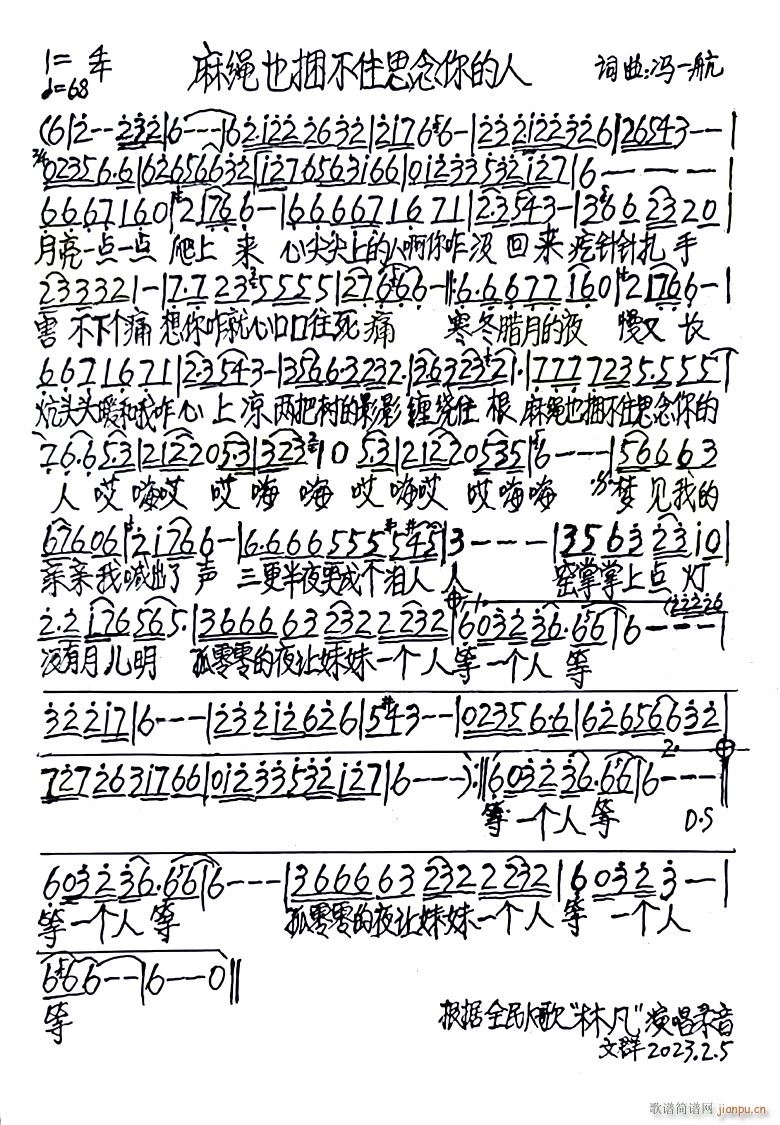 麻绳也捆不住思念你的人
1=
♩=68
词曲:冯一航
(6|2--232|6---|621222632|21766-|232122326|26543--|
02356.6|62656632|1276563166|01233532127|6----|
66671607|21766-|666671671|23543-|3662320|
月亮一点一点 爬上 来 心尖尖上的人啊你咋没 回 来 疙针针扎 手
2333321-|7.7235555|27666-‖:6.667716 0|21766-|
害 不下个痛 想你咋就心口口往死 痛 寒冬腊月的夜 慢又 长
6671671|23543-|356663232.|3.6323 21.|7777235.555|
炕头头暖和我咋心 上 凉 两把树的影影 缠绕住 根 麻绳也捆不住思念你的
7.6.65.3|212205.3|32310 5.3|21220535|6---|56663
人 哎 嗨哎 哎 嗨 嗨 哎 嗨哎 哎 嗨嗨 梦 见我的
67606|21766-|6.666555545|3---|35632310|
亲亲我喊出了 声 三更半夜哭成个泪人 人 窑掌掌上点 灯
2.2176565.|3666632322232|6032 36.65|6---|
没有月儿明 孤零零的夜让妹妹一个 人 等 一个人 等
32217|6---|2321262 6|543--|02356.6|62656632|
7272631766|01233532127|6----):‖6032 36.65|6---‖
等 一个人 等
2.
D.S
603236.65|6----|3666632322232|60323--|
等 一个人 等 孤零零的夜让妹妹一个 人 等 一个人
666--|6--0‖
等
根据全民K歌"林凡"演唱录音
文群2023.2.5
歌谱简谱网
jianpu.cn